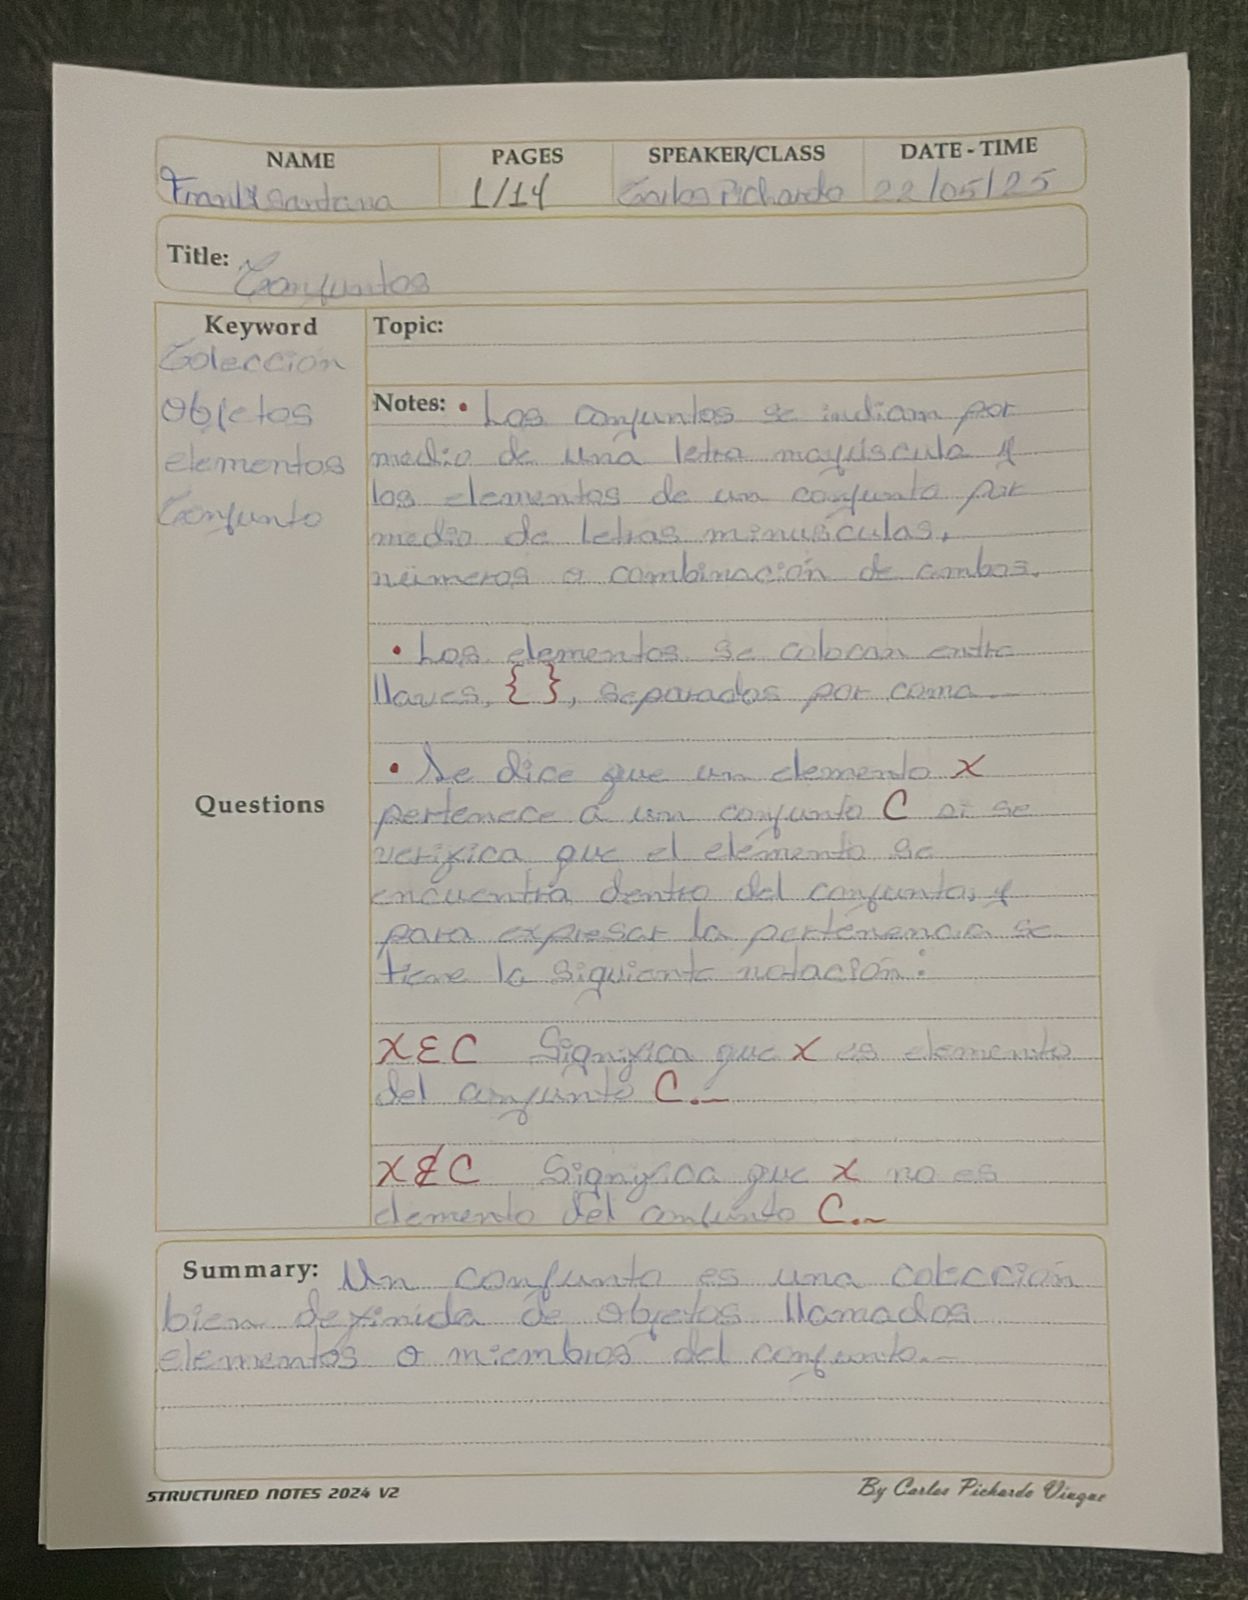 NAME PAGES SPEAKER/CLASS DATE - TIME
Frank Santana 1/14 Carlos Pichardo 22/05/25
Title: Conjuntos
Keyword
Colección
Objetos
elementos
Conjunto
Questions
Topic:
Notes: • Los conjuntos se indican por
medio de una letra mayúscula y
los elementos de un conjunto por
medio de letras minúsculas,
números o combinación de ambos.
• Los elementos se colocan entre
llaves, { }, separados por coma.
• Se dice que un elemento x
pertenece a un conjunto C si se
verifica que el elemento se
encuentra dentro del conjunto, y
para expresar la pertenencia se
tiene la siguiente notación:
X ∈ C Significa que x es elemento
del conjunto C.
X ∉ C Significa que x no es
elemento del conjunto C.
Summary: Un conjunto es una colección
bien definida de objetos llamados
elementos o miembros del conjunto.
STRUCTURED NOTES 2024 V2 By Carlos Pichardo Viuque